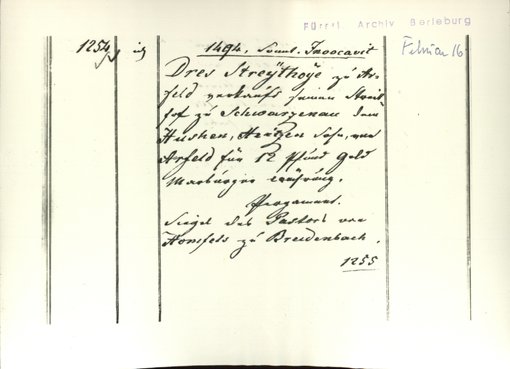 Fürstl. Archiv Berleburg
Februar 16
1254
1494, Sonnt. Invocavit
Dres Streÿthoÿe zu Ar-
feld verkauft seinen Streit-
hof zu Schwarzenau dem
Hushen, Hentzen Sohn, von
Arfeld für 12 Pfund Geld
Marburger Währung.
Pergament.
Siegel des Pastors von
Homfels zu Breidenbach.
1255